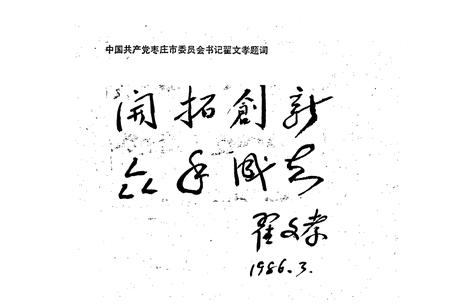 中国共产党枣庄市委员会书记翟文孝题词
開拓創新
众手成志
翟文孝
1986.3.